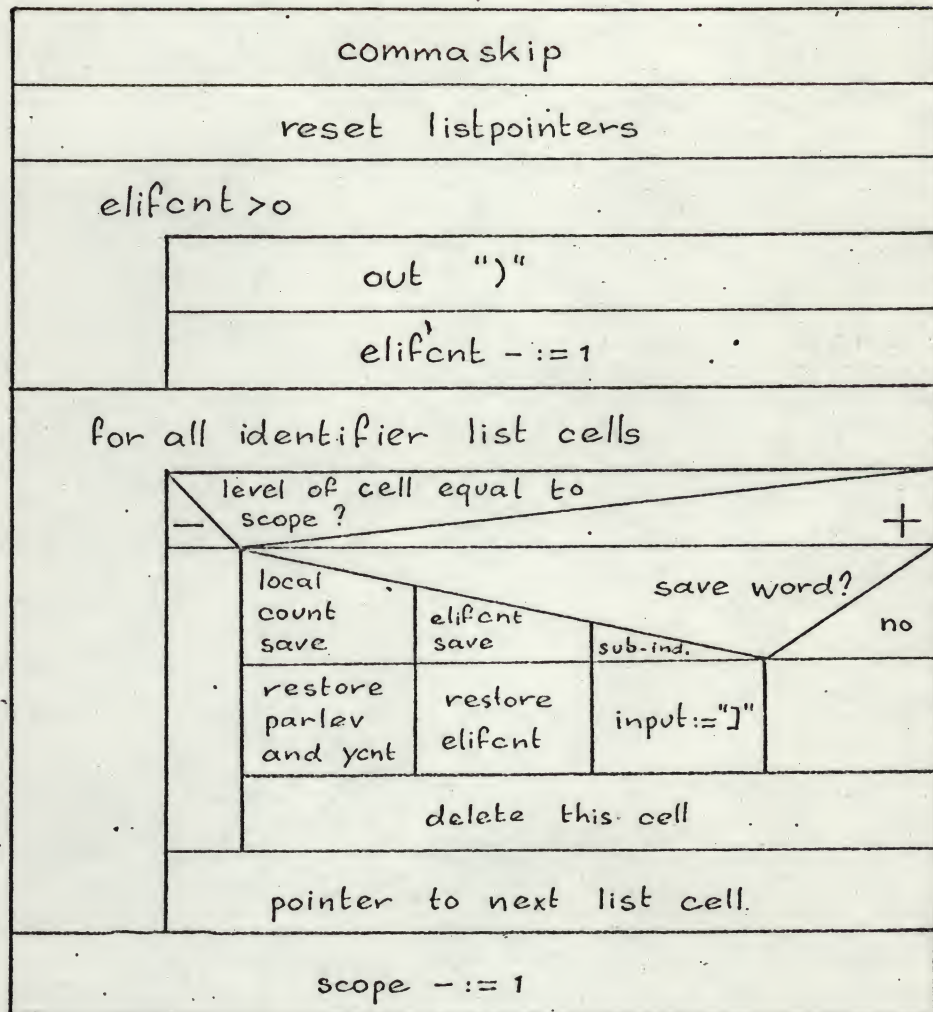 comma skip
reset listpointers
elifcnt >0
out ")"
elifcnt - := 1
for all identifier list cells
level of cell equal to
scope ?
—
+
save word?
local
count
save
elifcnt
save
sub-ind.
no
restore
parlev
and ycnt
restore
elifcnt
input:="]"
delete this cell
pointer to next list cell.
scope - := 1